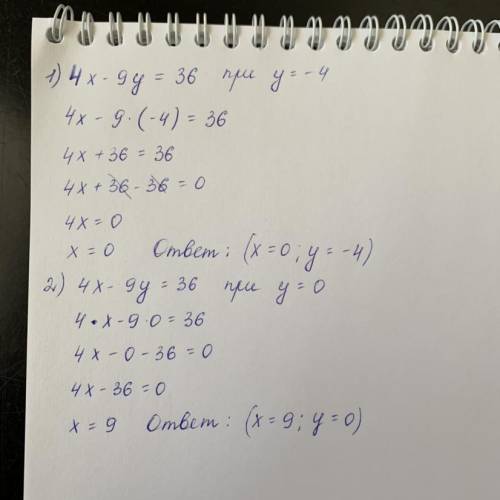 1) 4x - 9y = 36 при y = -4
4x - 9·(-4) = 36
4x + 36 = 36
4x + 36 - 36 = 0
4x = 0
x = 0 Ответ: (x = 0; y = -4)
2) 4x - 9y = 36 при y = 0
4·x - 9·0 = 36
4x - 0 - 36 = 0
4x - 36 = 0
x = 9 Ответ: (x = 9; y = 0)